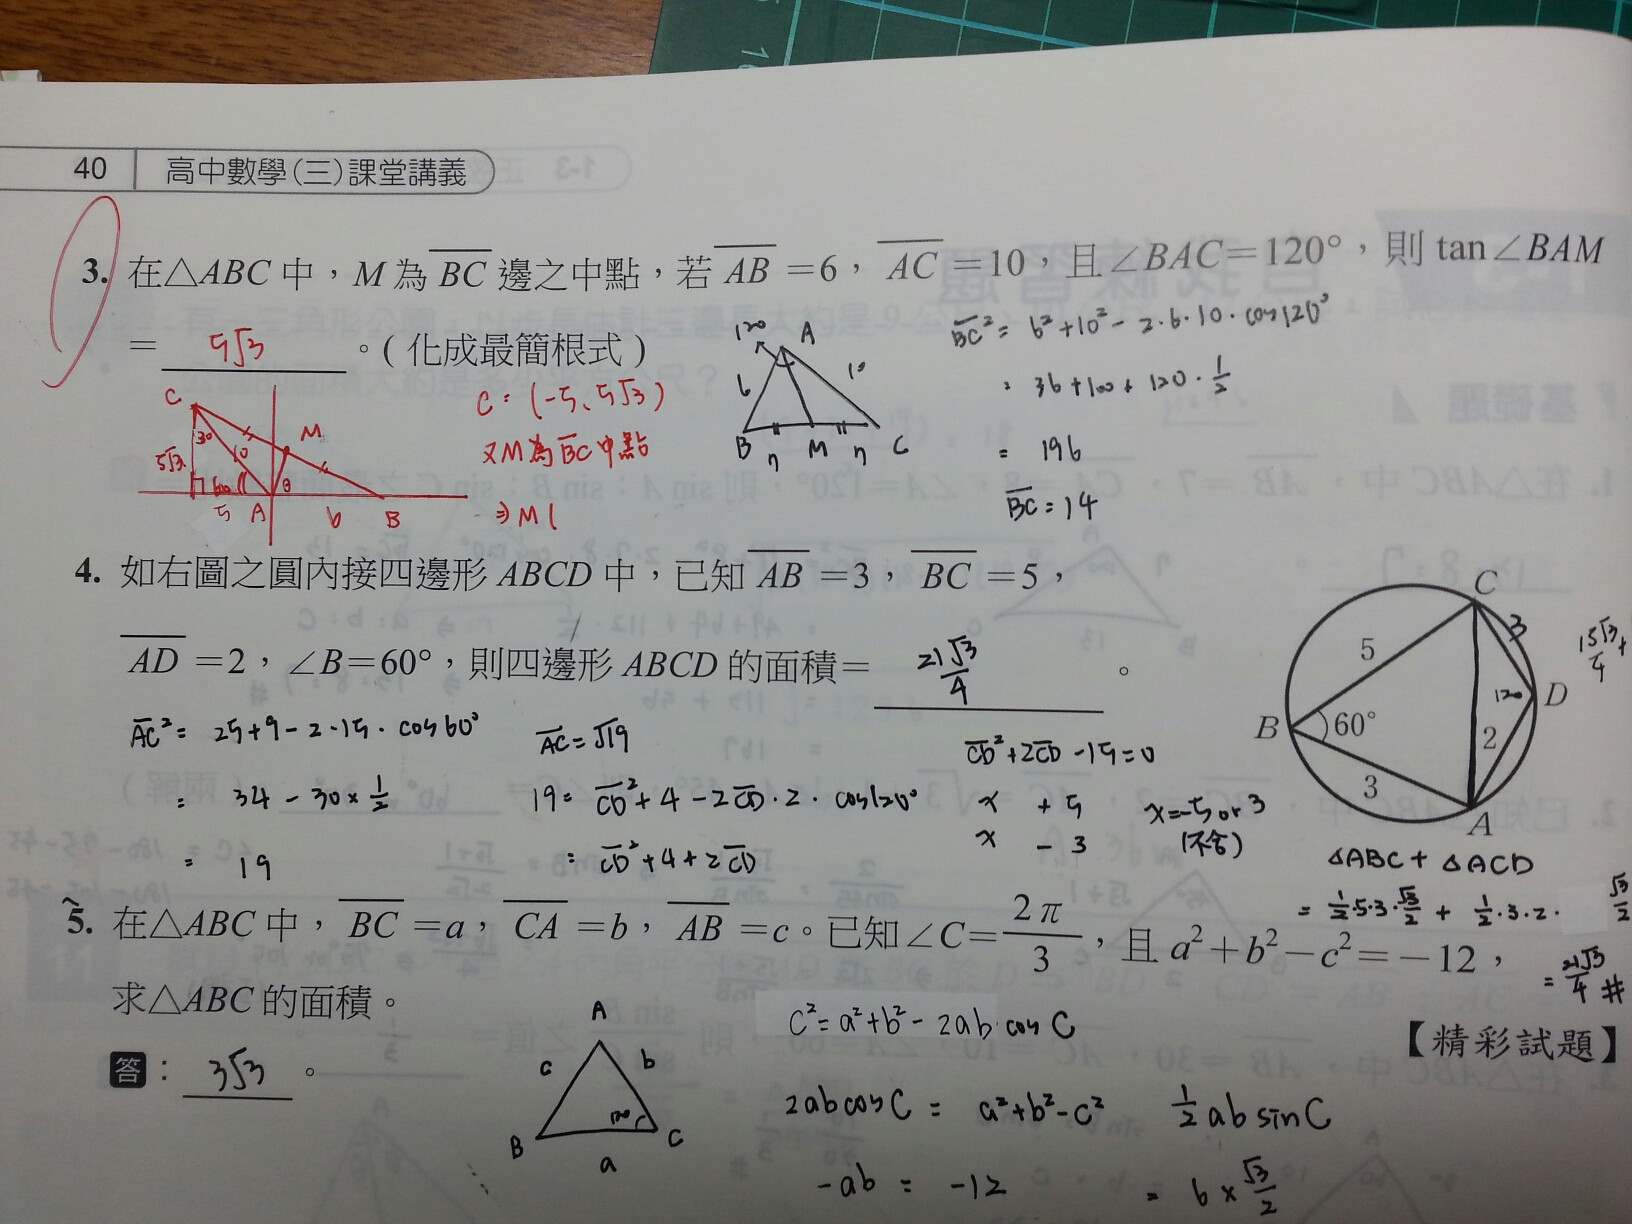 40 高中數學(三)課堂講義
3. 在△ABC 中，M 為 BC 邊之中點，若 AB =6，AC =10，且∠BAC=120°，則 tan∠BAM
= 5√3 。(化成最簡根式)
C
30
10
M
5√3
60
θ
5 A 6 B
C = (-5、5√3)
又M為BC中點
⇒ M (
120 A
6 10
B 7 M 7 C
BC² = 6²+10² - 2·6·10·cos120°
= 36+100+120·1/2
= 196
BC = 14
4. 如右圖之圓內接四邊形 ABCD 中，已知 AB =3，BC =5，
AD =2，∠B=60°，則四邊形 ABCD 的面積= 21√3/4 。
C
3
5
120 D
B 60° 2
3
A
15√3/4 +
AC² = 25+9-2·15·cos60°
= 34-30×1/2
= 19
AC = √19
19 = CD²+4-2CD·2·cos120°
= CD²+4+2CD
CD²+2CD-15=0
x +5
x -3
x=-5 or 3
(不合)
△ABC + △ACD
= 1/2·5·3·√3/2 + 1/2·3·2·√3/2
= 21√3/4 #
5. 在△ABC 中，BC =a，CA =b，AB =c。已知∠C=2π/3，且 a²+b²-c²=-12，
求△ABC 的面積。
【精彩試題】
答：3√3 。
A
c b
120
B a C
c²=a²+b²-2ab cosC
2abcosC = a²+b²-c²
-ab = -12
1/2 ab sinC
= 6×√3/2